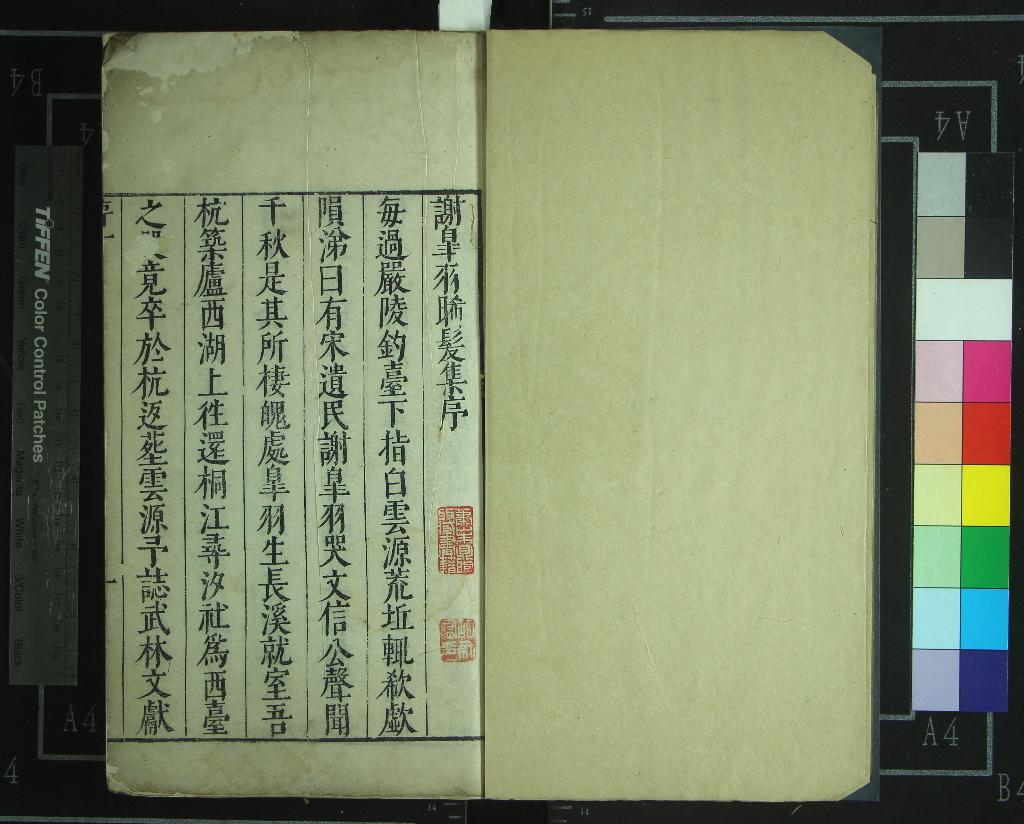 謝皐羽晞髮集序
每過嚴陵釣臺下指白雲源荒坵輒欷歔
隕涕曰有宋遺民謝皐羽哭文信公聲聞
千秋是其所棲魄處皐羽生長溪就室吾
杭築廬西湖上徃還桐江尋汐社爲西臺
之竟卒於杭返塟雲源予誌武林文獻
序一
一
TIFFEN Color Control Patches
Blue
Cyan
Green
Yellow
Red
Magenta
White
3/Color
Black
B4
A4
A4
A4
A4
B4
4
15
14
14